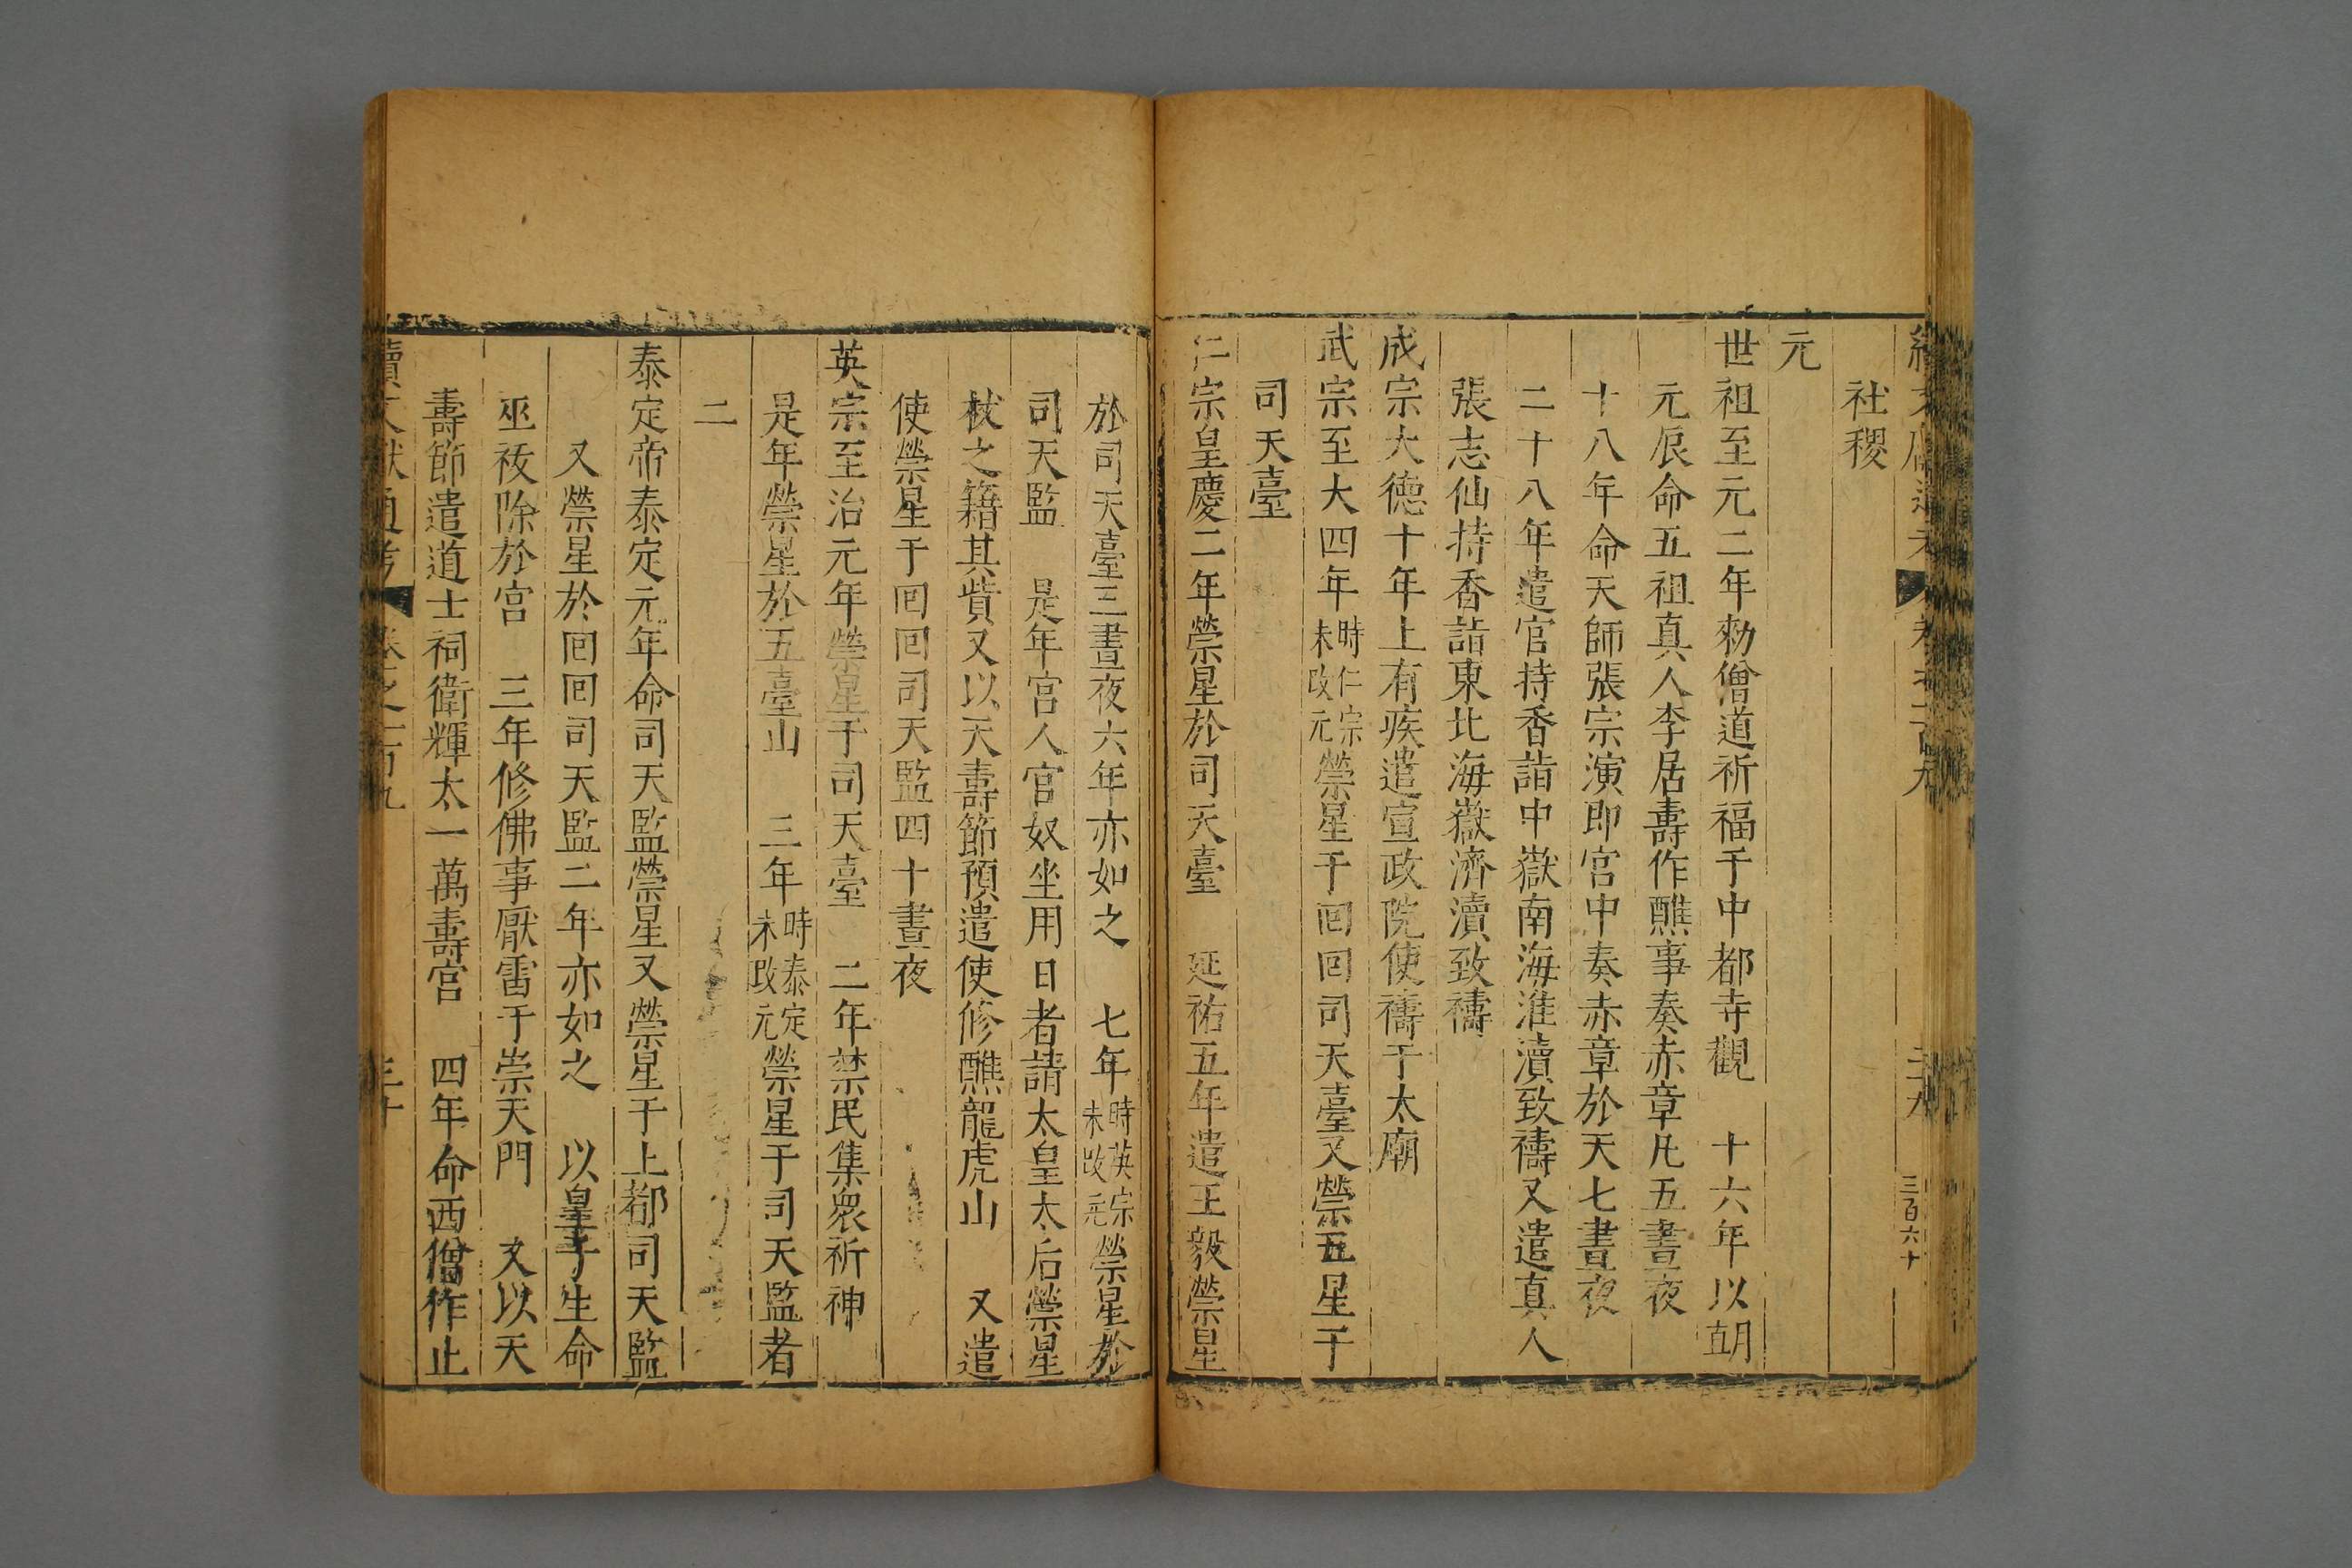 社稷
元
世祖至元二年勑僧道祈福于中都寺觀　十六年以
元辰命五祖真人李居壽作醮事奏赤章凡五晝夜
十八年命天師張宗演即宮中奏赤章於天七晝夜
二十八年遣官持香詣中嶽南海淮瀆致禱又遣真人
張志仙持香詣東北海嶽濟瀆致禱
成宗大德十年上有疾遣宣政院使禱于太廟
武宗至大四年時仁宗未改元禜星于回回司天臺又禜五星于
司天臺
仁宗皇慶二年禜星於司天臺　延祐五年遣王毅禜星
於司天臺三晝夜六年亦如之　七年時英宗未改元禜星於
司天監　是年宮人官奴坐用日者請太皇太后禜星
杖之籍其貲又以天壽節預遣使修醮龍虎山　又遣
使禜星于回回司天監四十晝夜
英宗至治元年禜星于司天臺　二年禁民集衆祈神
是年禜星於五臺山　三年時泰定未改元禜星于司天監者
二
泰定帝泰定元年命司天監禜星又禜星于上都司天監
又禜星於回回司天監二年亦如之　以皇子生命
巫祓除於宮　三年修佛事厭雷于崇天門　又以天
壽節遣道士祠衛輝太一萬壽宮　四年命西僧作止
續文獻通考　卷之一百九　三十